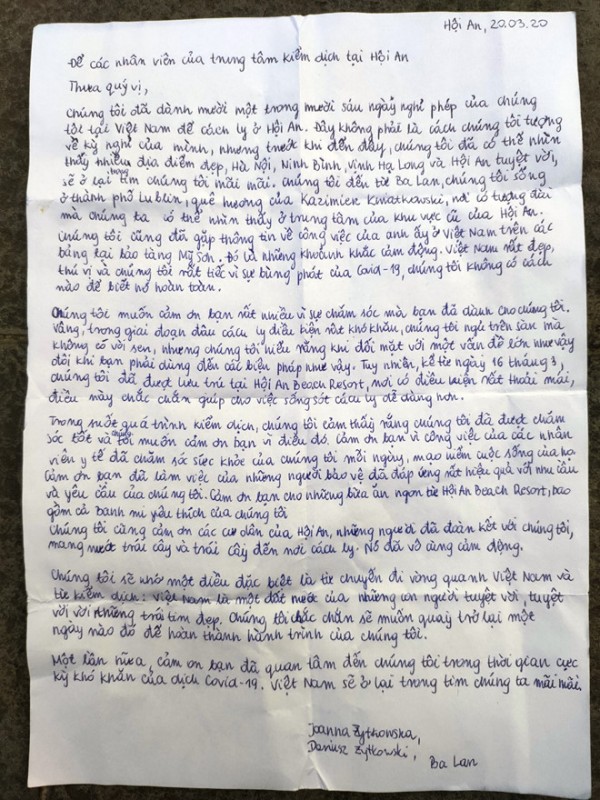 Hội An, 20.03.20
Để các nhân viên của trung tâm kiểm dịch tại Hội An
Thưa quý vị,
Chúng tôi đã dành mười một trong mười sáu ngày nghỉ phép của chúng
tôi tại Việt Nam để cách ly ở Hội An. Đây không phải là cách chúng tôi tượng
về kỳ nghỉ của mình, nhưng trước khi đến đây, chúng tôi đã có thể nhìn
thấy nhiều địa điểm đẹp, Hà Nội, Ninh Bình, Vịnh Hạ Long và Hội An tuyệt vời,
sẽ ở lại trong tim chúng tôi mãi mãi. Chúng tôi đến từ Ba Lan, chúng tôi sống
ở thành phố Lublin, quê hương của Kazimierz Kwiatkowski, nơi có tượng đài
mà chúng ta có thể nhìn thấy ở trung tâm của khu vực cũ của Hội An.
Chúng tôi cũng đã gặp thông tin về công việc của anh ấy ở Việt Nam trên các
bảng tại bảo tàng Mỹ Sơn. Đó là những khoảnh khắc cảm động. Việt Nam rất đẹp,
thú vị và chúng tôi rất tiếc vì sự bùng phát của Covid-19, chúng tôi không có cách
nào để biết nó hoàn toàn.
Chúng tôi muốn cảm ơn bạn rất nhiều vì sự chăm sóc mà bạn đã dành cho chúng tôi.
Vâng, trong giai đoạn đầu cách ly điều kiện rất khó khăn, chúng tôi ngủ trên sàn mà
không có vòi sen, nhưng chúng tôi hiểu rằng khi đối mặt với một vấn đề lớn như vậy
đôi khi bạn phải dùng đến các biện pháp như vậy. Tuy nhiên, kể từ ngày 16 tháng 3,
chúng tôi đã được lưu trú tại Hội An Beach Resort, nơi có điều kiện rất thoải mái,
điều này chắc chắn giúp cho việc sống sót cách ly dễ dàng hơn.
Trong suốt quá trình kiểm dịch, chúng tôi cảm thấy rằng chúng tôi đã được chăm
sóc tốt và chúng tôi muốn cảm ơn bạn vì điều đó. Cảm ơn bạn vì công việc của các nhân
viên y tế đã chăm sóc sức khỏe của chúng tôi mỗi ngày, mạo hiểm cuộc sống của họ
Cảm ơn bạn đã làm việc của những người bảo vệ đã đáp ứng rất hiệu quả với nhu cầu
và yêu cầu của chúng tôi. Cảm ơn bạn cho những bữa ăn ngon từ Hội An Beach Resort, bao
gồm cả bánh mì yêu thích của chúng tôi
Chúng tôi cũng cảm ơn các cư dân của Hội An, những người đã đoàn kết với chúng tôi,
mang nước trái cây và trái cây đến nơi cách ly. Nó đã vô cùng cảm động.
Chúng tôi sẽ nhớ một điều đặc biệt là từ chuyến đi vòng quanh Việt Nam và
từ kiểm dịch: Việt Nam là một đất nước của những con người tuyệt vời, tuyệt
vời với những trái tim đẹp. Chúng tôi chắc chắn sẽ muốn quay trở lại một
ngày nào đó để hoàn thành hành trình của chúng tôi.
Một lần nữa, cảm ơn bạn đã quan tâm đến chúng tôi trong thời gian cực
kỳ khó khăn của dịch Covid-19. Việt Nam sẽ ở lại trong tim chúng ta mãi mãi.
Joanna Żytkowska,
Dariusz Żytkowski,
Ba Lan